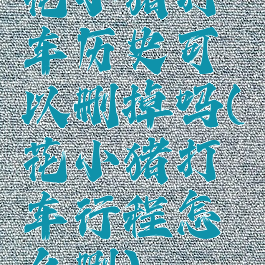 花小猪打
车历史可
以删掉吗(
花小猪打
车行程怎
么删)